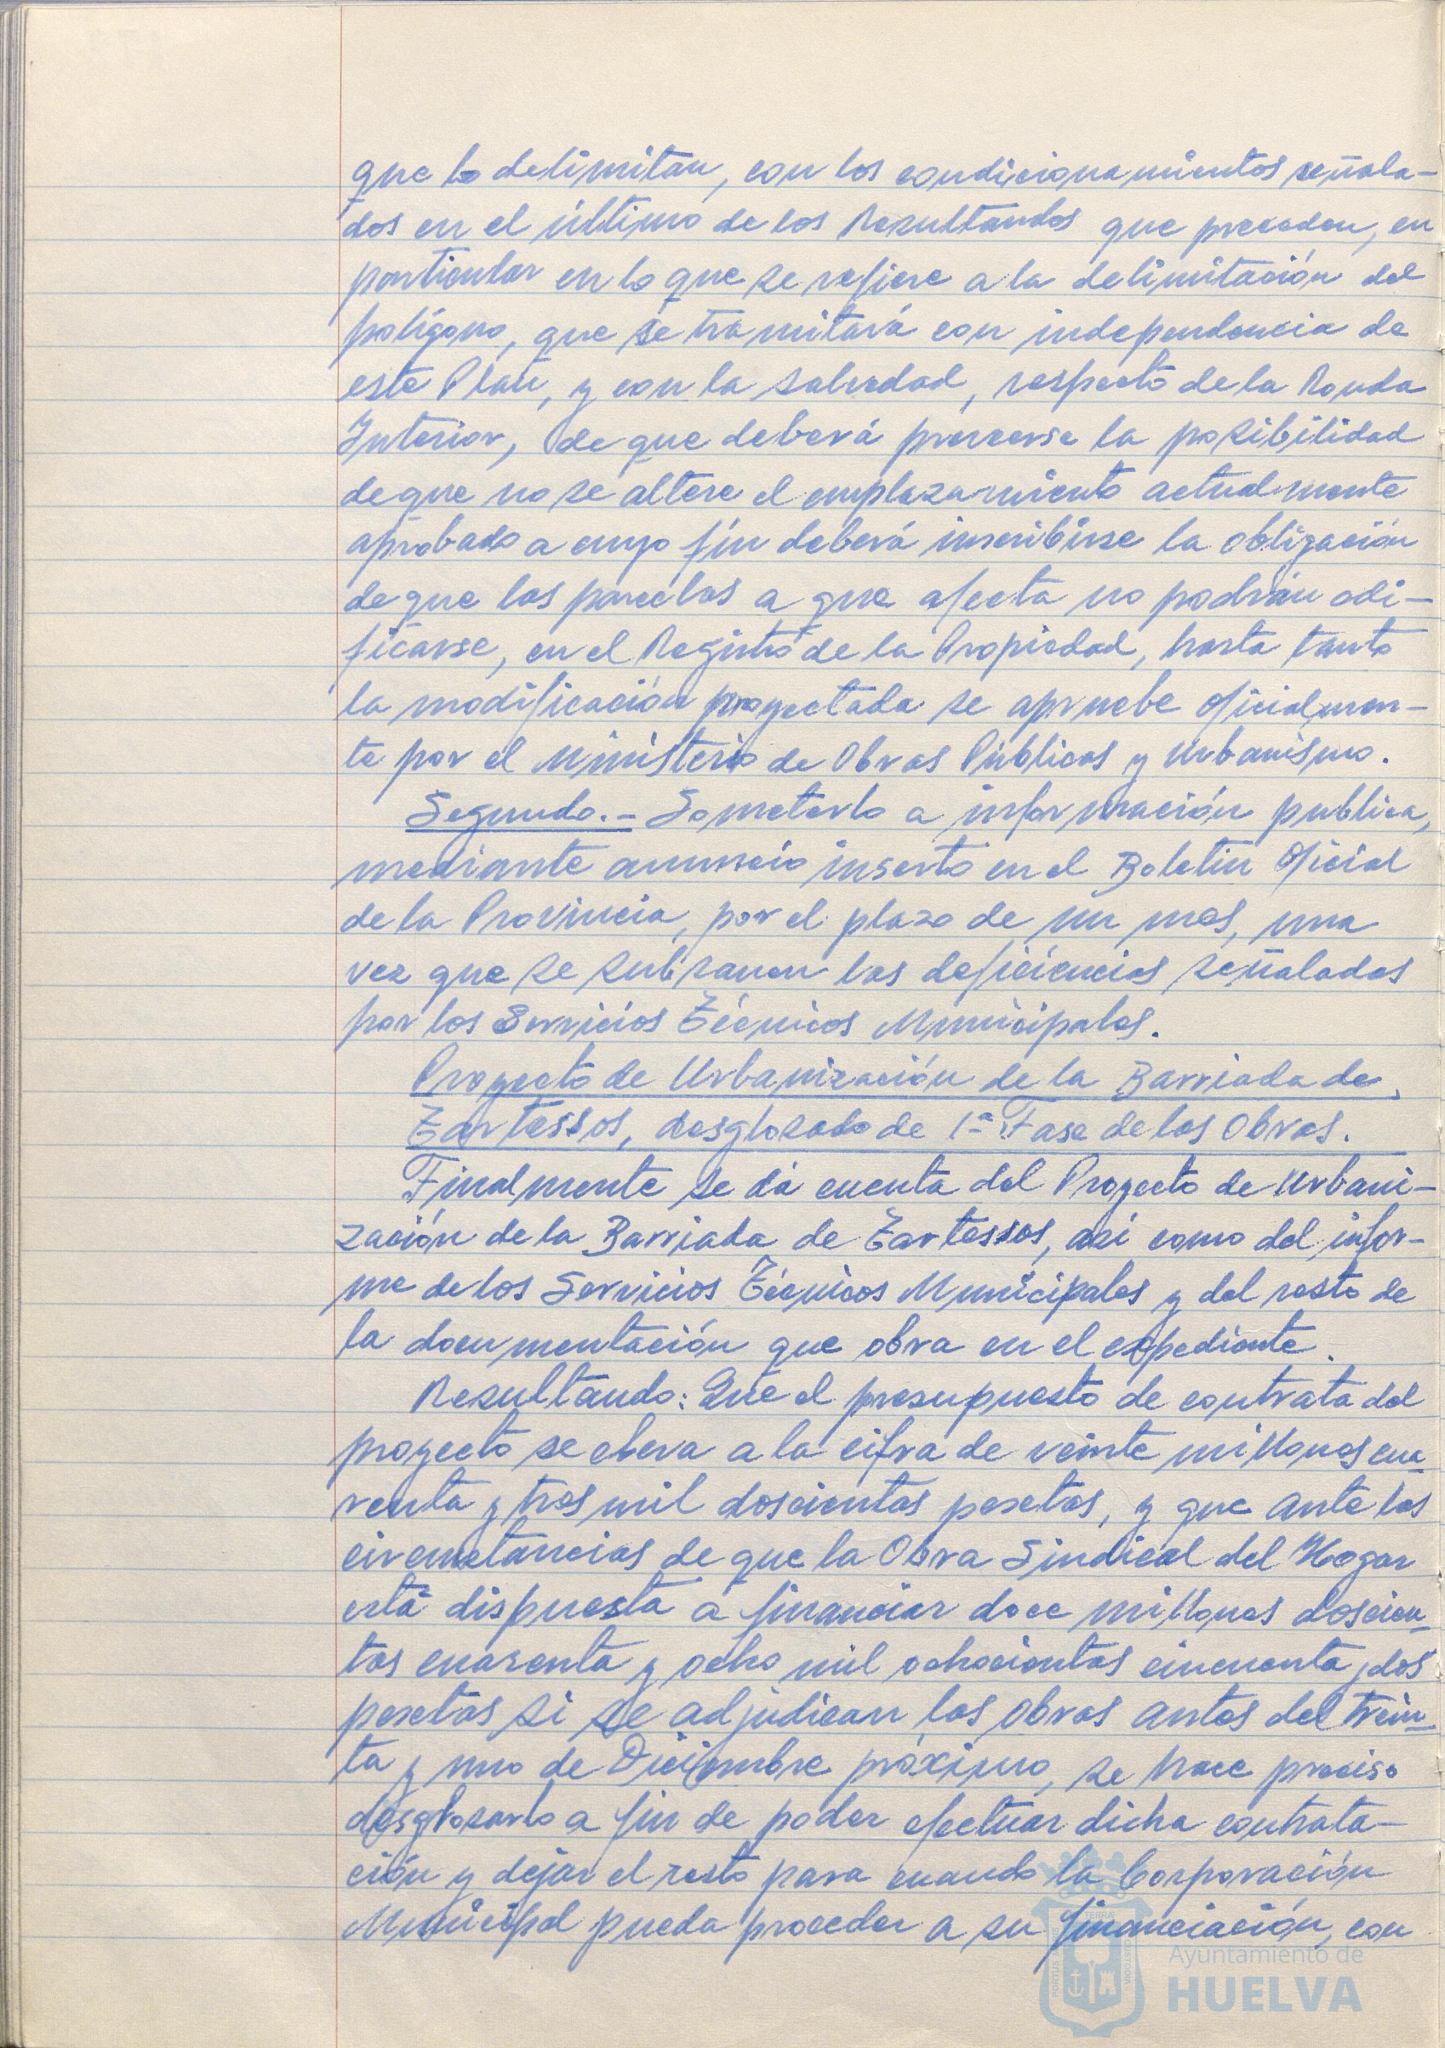 que lo delimitan, con los condicionamientos señala-
dos en el último de los Resultandos que preceden, en
particular en lo que se refiere a la delimitación del
polígono, que se tramitará con independencia de
este Plan, y con la salvedad, respecto de la Ronda
Interior, de que deberá preverse la posibilidad
de que no se altere el emplazamiento actualmente
aprobado a cuyo fín deberá inscribirse la obligación
de que las parcelas a que afecta no podrán edi-
ficarse, en el Registro de la Propiedad, hasta tanto
la modificación proyectada se apruebe oficialmen-
te por el Ministerio de Obras Públicas y Urbanismo.
Segundo.- Someterlo a información publica,
mediante anuncio inserto en el Boletin Oficial
de la Provincia, por el plazo de un mes, una
vez que se subsanen las deficiencias señaladas
por los Servicios Técnicos Municipales.
Proyecto de Urbanización de la Barriada de
Tartessos, desglosado de 1ª Fase de las Obras.
Finalmente se dá cuenta del Proyecto de Urbani-
zación de la Barriada de Tartessos, así como del infor-
me de los Servicios Técnicos Municipales y del resto de
la documentación que obra en el expediente.
Resultando: Que el presupuesto de contrata del
proyecto se eleva a la cifra de veinte millones cua-
renta y tres mil doscientas pesetas, y que ante las
circunstancias de que la Obra Sindical del Hogar
está dispuesta a financiar doce millones doscien-
tas cuarenta y ocho mil ochocientas cincuenta y dos
pesetas si se adjudican las obras antes del trein-
ta y uno de Diciembre próximo, se hace preciso
desglosarlo a fin de poder efectuar dicha contrata-
ción y dejar el resto para cuando la Corporación
Municipal pueda proceder a su financiación, con
Ayuntamiento de
HUELVA